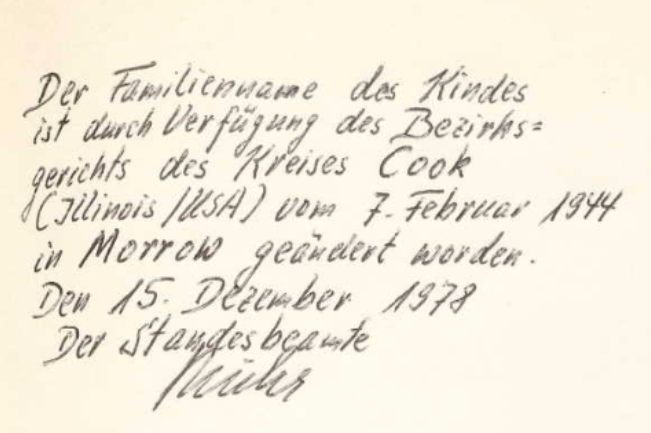 Der Familienname des Kindes
ist durch Verfügung des Bezirks=
gerichts des Kreises Cook
(Illinois/USA) vom 7. Februar 1944
in Morrow geändert worden.
Den 15. Dezember 1978
Der Standesbeamte